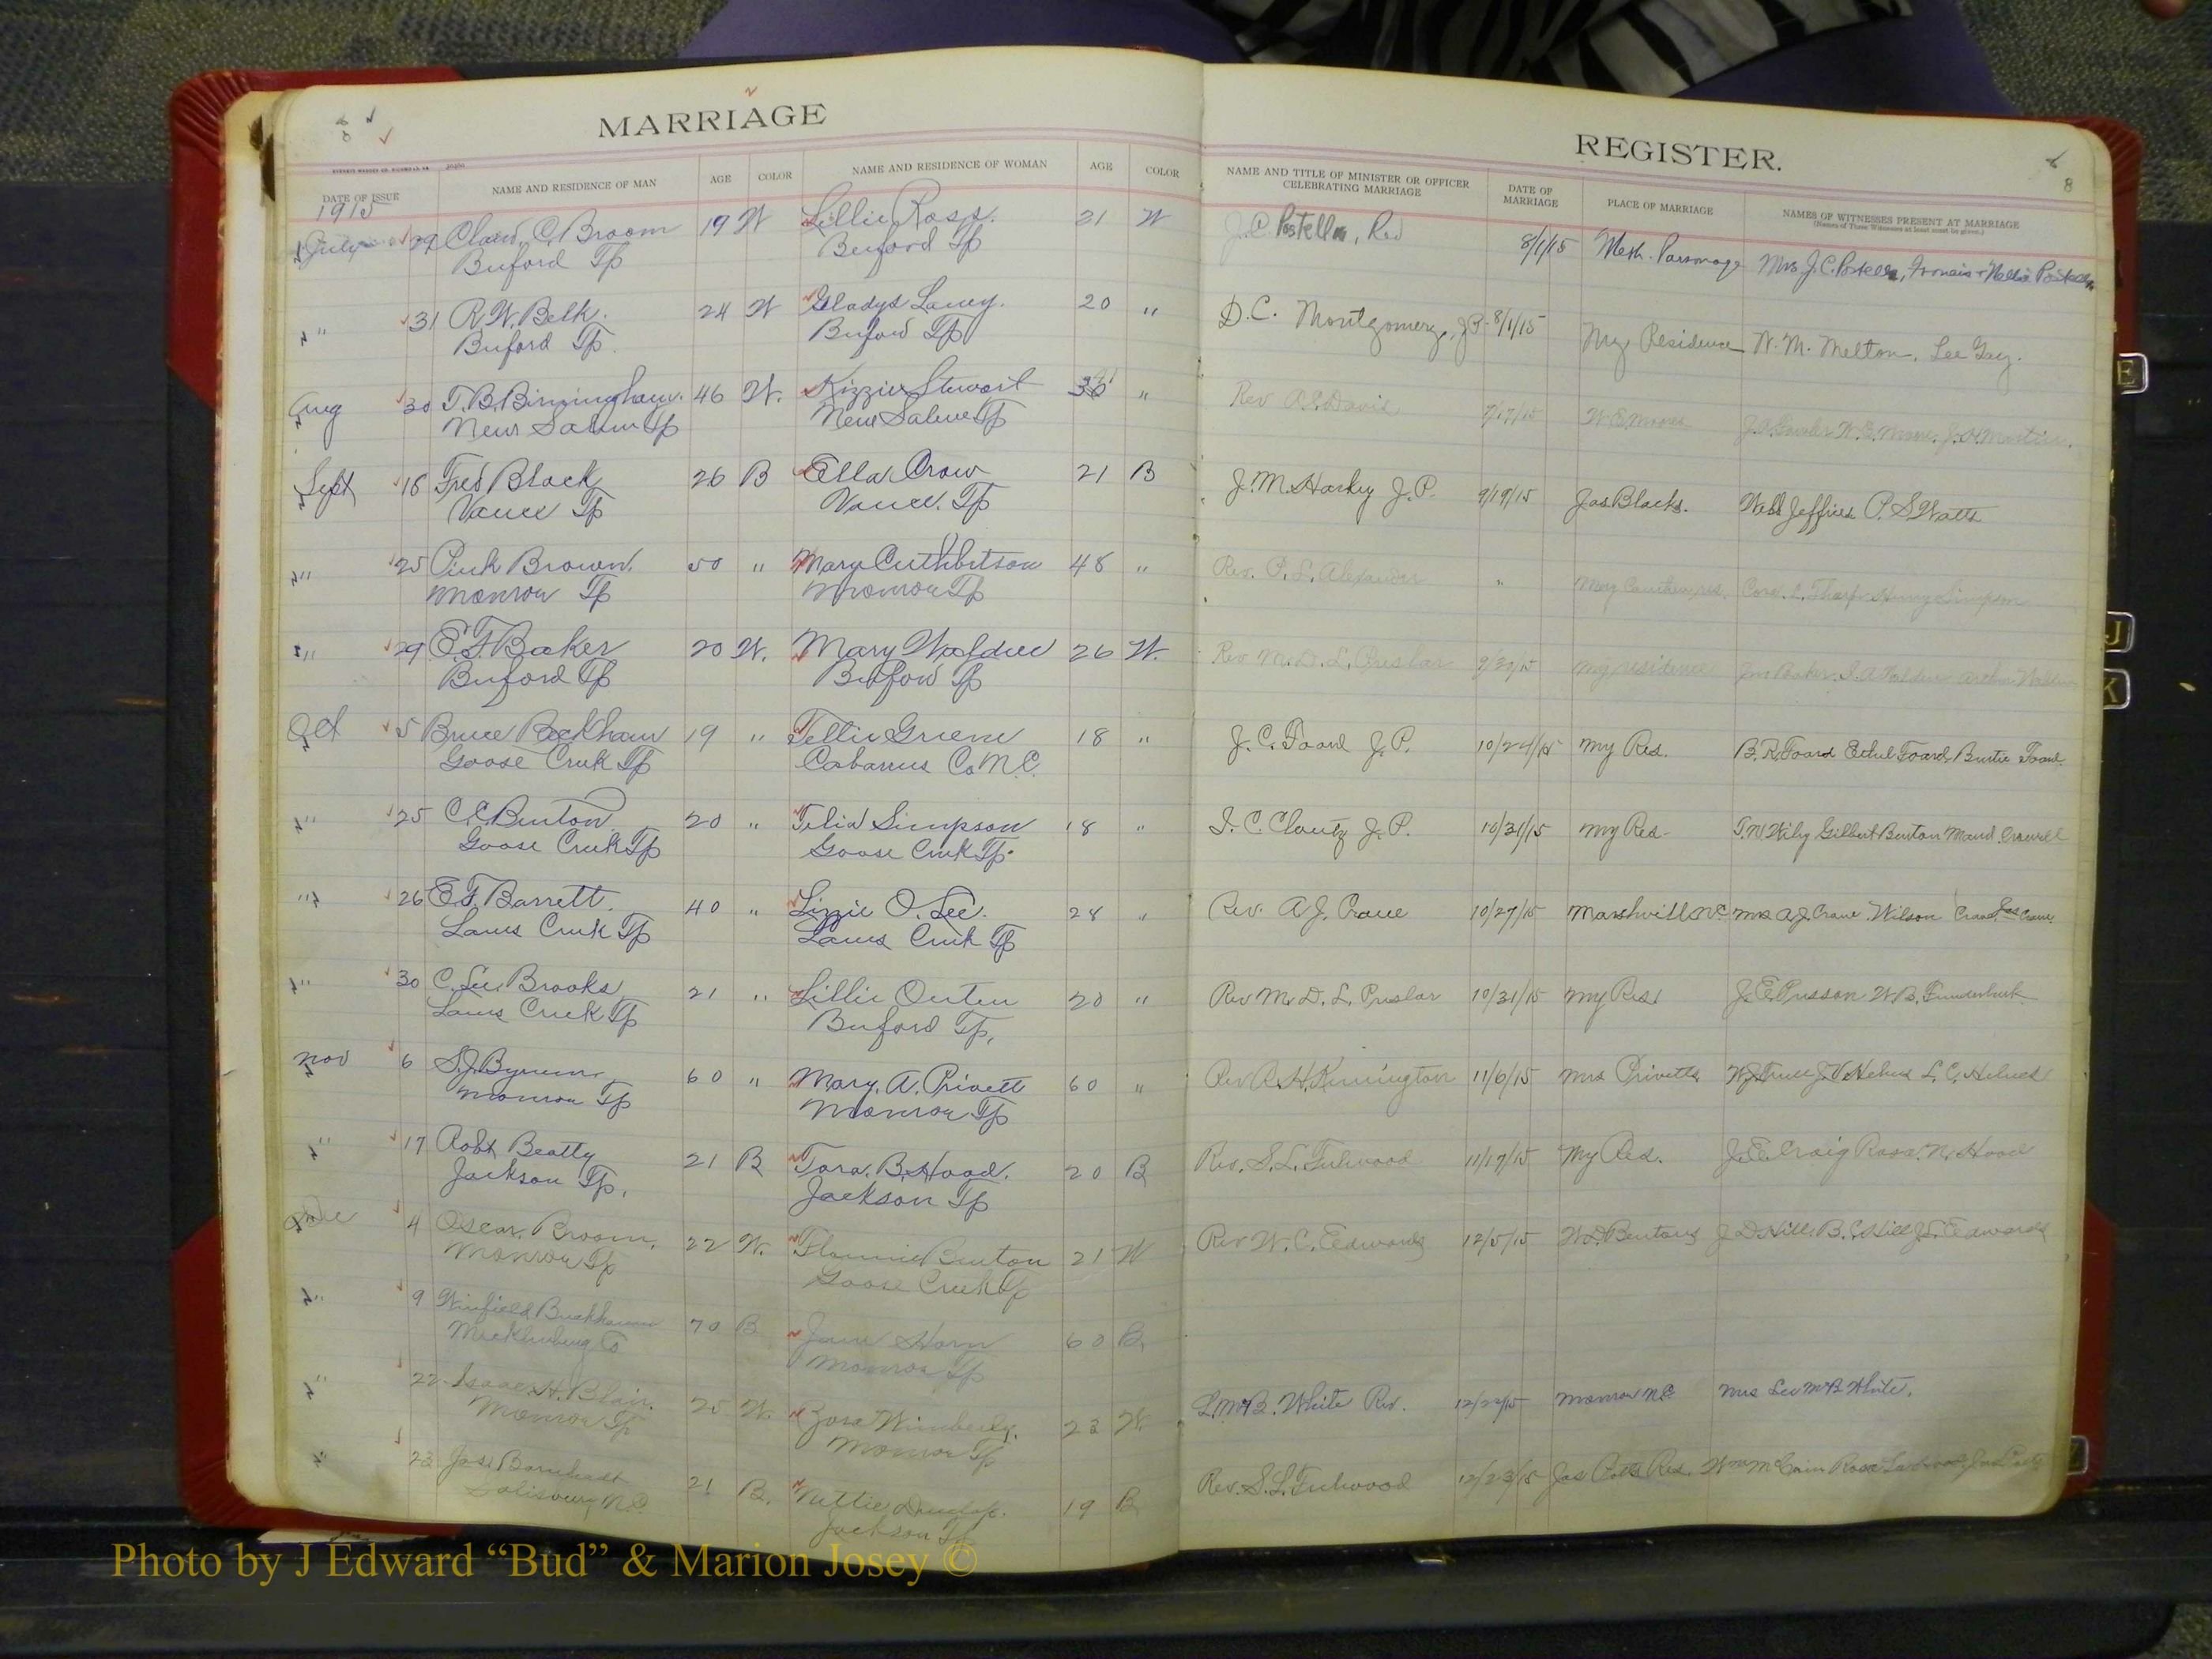 MARRIAGE
DATE OF ISSUE NAME AND RESIDENCE OF MAN AGE COLOR NAME AND RESIDENCE OF WOMAN AGE COLOR
1915
July 29 C. Broom 19 W Lillie Ross. 21 W
Buford Tp Buford Tp
" 31 R. W. Belk. 24 W Gladys Laney. 20 "
Buford Tp. Buford Tp
Aug 30 T. B. Birmingham. 46 W. Kizzie Stewart "
New Salem Tp New Salem Tp
Sept 18 Fred Black 26 B Ella Crow 21 B
Vance Tp Vance. Tp
" 25 Pink Brown. 50 " Mary Cuthbertson 48 "
Monroe Tp Monroe Tp
" 29 E. F. Baker 20 W. Mary 26 W.
Buford Tp Buford Tp
Oct 5 Bruce Beckham 19 " Tellie Griene 18 "
Goose Creek Tp Cabarrus Co N.C.
" 25 C. C. Benton 20 " Telia Simpson 18 "
Goose Creek Tp Goose Creek Tp.
" 26 E. F. Barrett. 40 " Lizzie O. Lee. 28 "
Lanes Creek Tp Lanes Creek Tp
" 30 C. Lee Brooks 21 " Lillie Outen 20 "
Lanes Creek Tp Buford Tp,
Nov 6 S. J. Bynum 60 " Mary. A. Privett 60 "
Monroe Tp Monroe Tp
" 17 Robt Beatty 21 B Tora. B. Hood. 20 B
Jackson Tp, Jackson Tp
Dec 4 Oscar. Broom. 22 W. Flonnie Benton 21 W
Monroe Tp Goose Creek Tp
" 9 Winfield 70 B Jane Horn 60 B.
Mecklenburg Co Monroe Tp
" 22 Isaac H. Blair. 25 W. Zora Wimberly. 23 W.
Monroe Tp Monroe Tp
" 23 Jose Barnhardt 21 B. Nettie Dunlap. 19 B
Salisbury N.C. Jackson Tp
REGISTER.
8
NAME AND TITLE OF MINISTER OR OFFICER CELEBRATING MARRIAGE DATE OF MARRIAGE PLACE OF MARRIAGE NAMES OF WITNESSES PRESENT AT MARRIAGE
(Names of Three Witnesses at least must be given.)
J. C. Postelle, Rev 8/1/15 Meth. Parsonage Mrs. J. C. Postelle, Postelle
D. C. Montgomery, J.P. 8/1/15 My Residence N. M. Melton, Lee Gay.
Rev Davis W. E. Moore W. E. Moore,
J. M. Harkey J. P. 9/19/15 Jas Blacks. Will Jeffries P. S Watts
Rev. P. L. Alexander " Henry Simpson
Rev. M. D. L. Preslar my residence Baker.
J. C. Foard J. P. 10/24/15 my Res. B. R. Foard Ethel Foard Foard.
J. C. Clontz J. P. 10/31/15 my Res- Gilbert Benton Maud Crowell
Rev. A. J. Crane 10/27/15 Marshville N.C. Mrs A. J. Crane Wilson Crane, Crane.
Rev M. D. L. Preslar 10/31/15 My Res. J. E. Presson W. B. Funderburk
Rev R. H. Kennington 11/6/15 Mrs Privetts L. C. Helms
Rev. S. L. Fulwood 11/17/15 My Res. J. E. Craig Rosa. N. Hood
Rev W. C. Edwards 12/5/15 W. D. Bentons J. D. Hill. B. C. Hill Edwards
L. McB. White Rev. 12/22/15 Monroe N.C. Mrs Lee McB White.
Rev. S. L. Fulwood 12/23/15 Jas Res. Wm McCain Rosa
Photo by J Edward “Bud” & Marion Josey ©
E
J
K